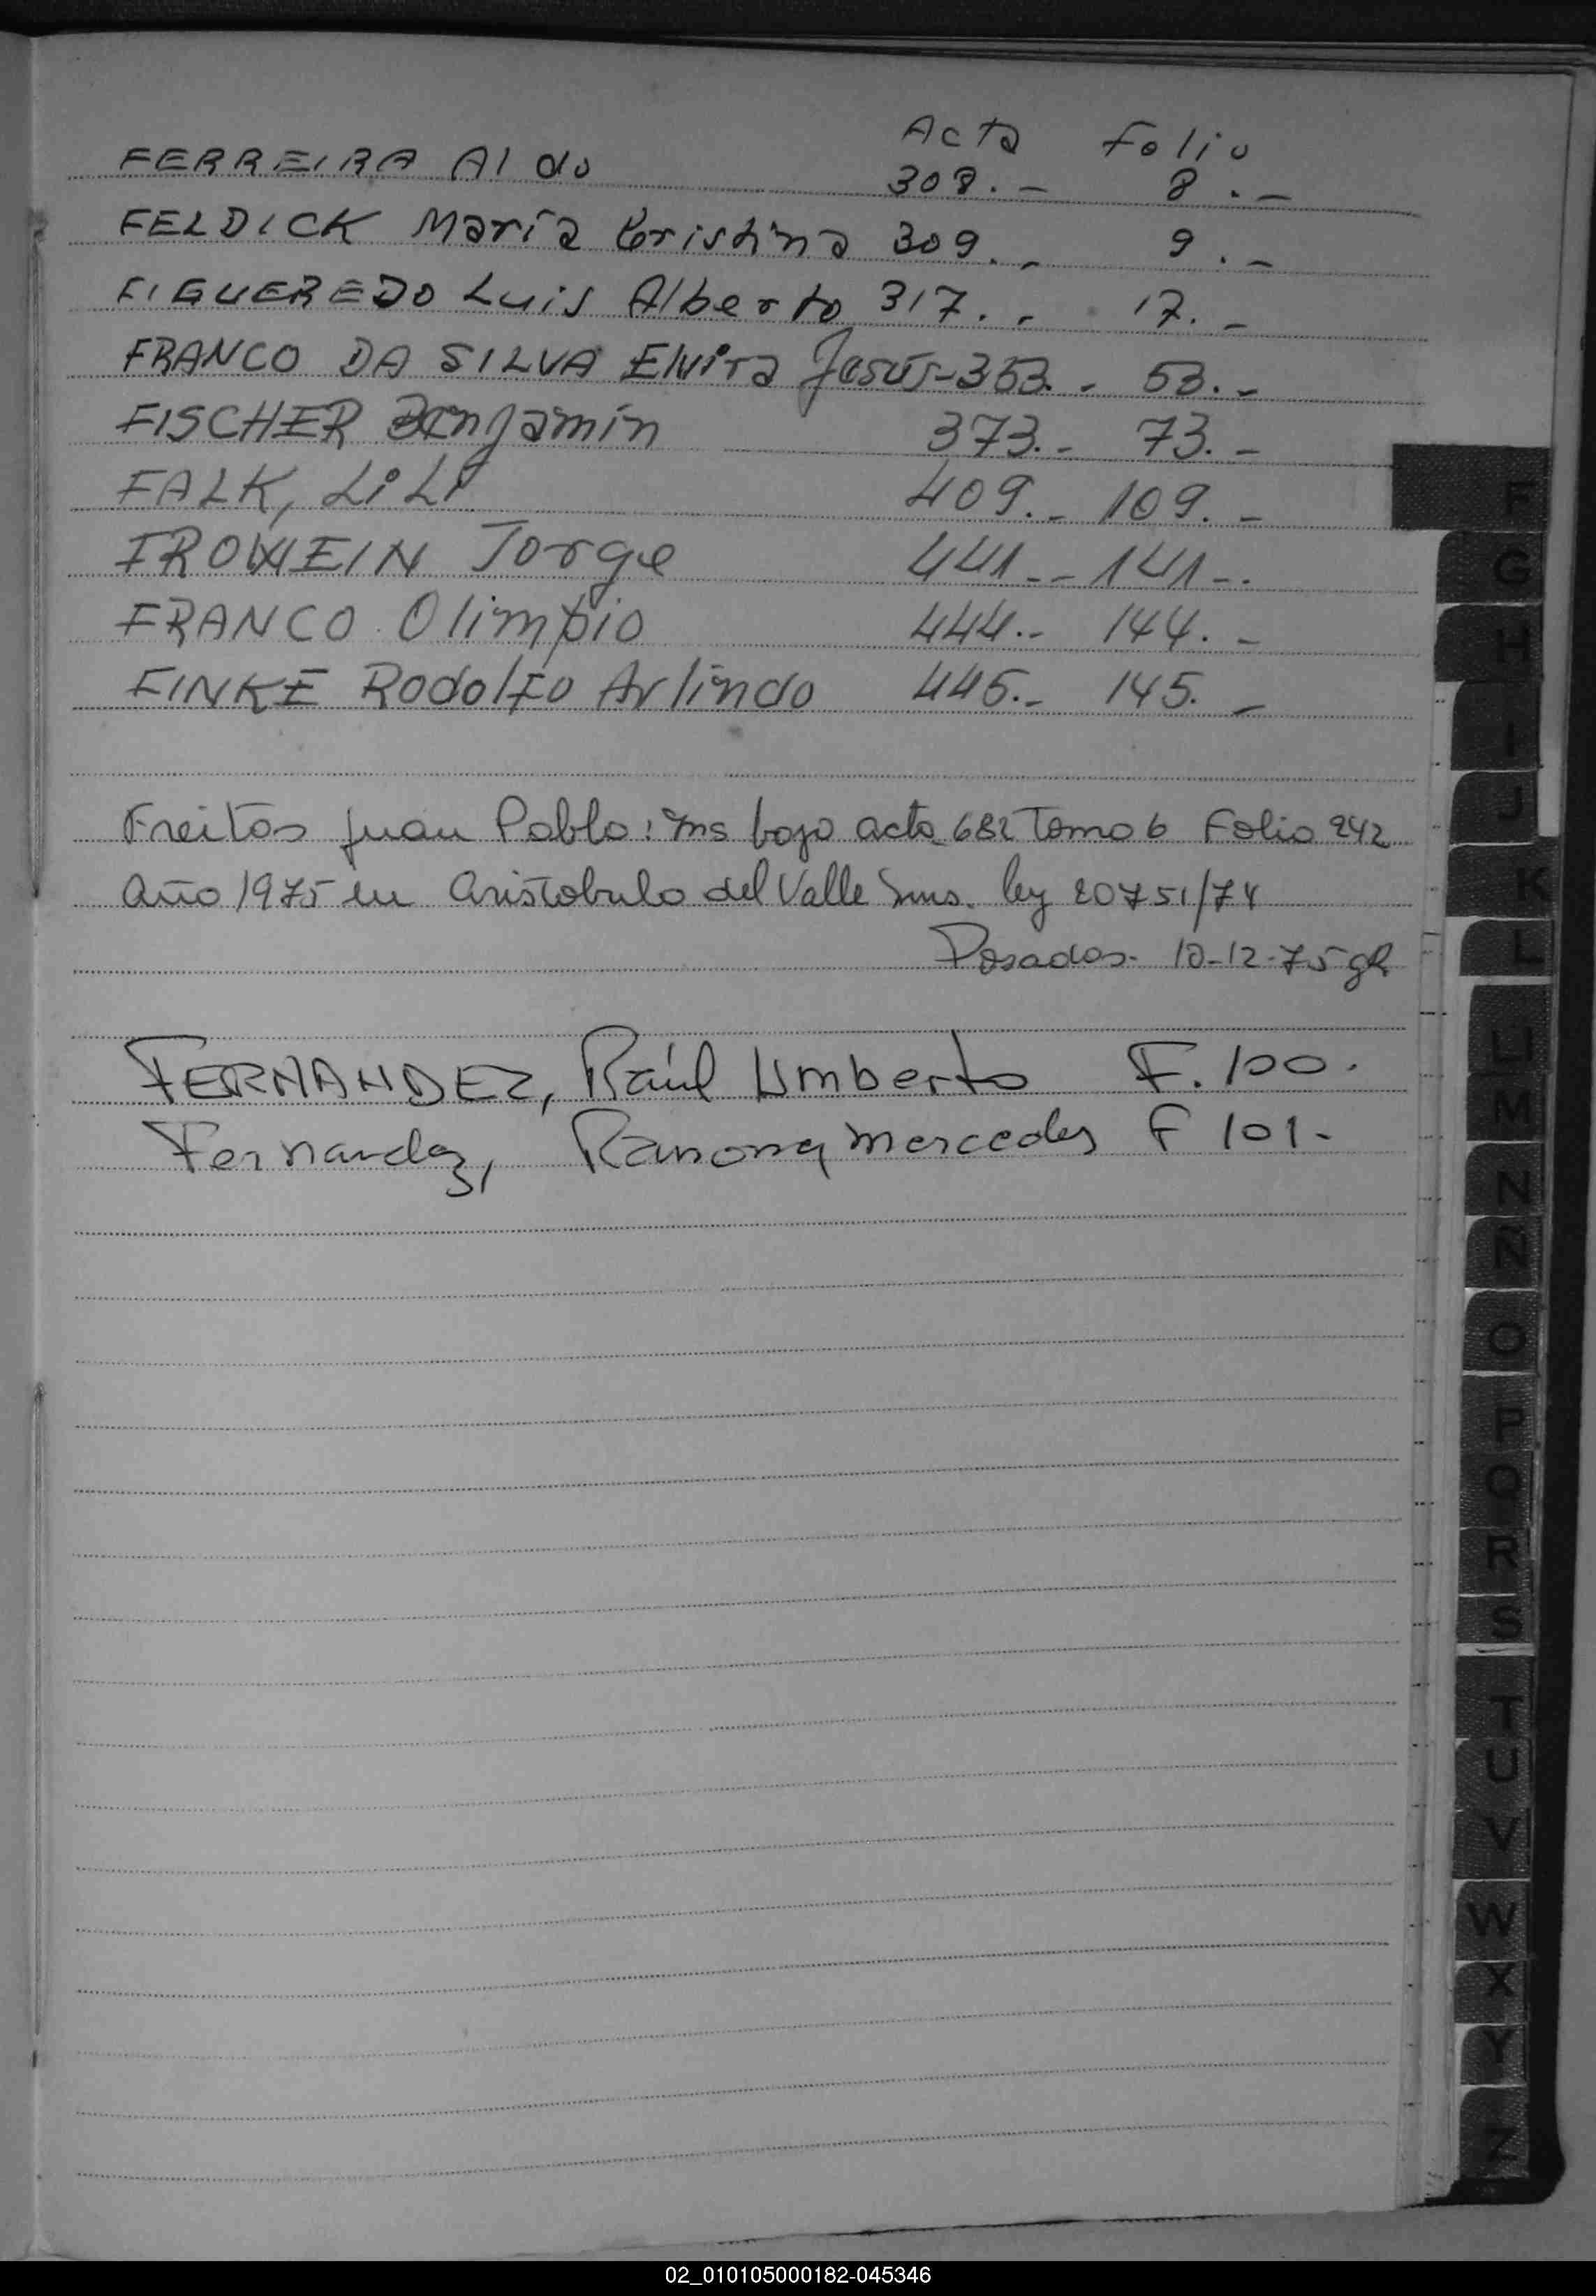 Acta Folio
FERREIRA Aldo 308.- 8.-
FELDICK María Cristina 309.- 9.-
FIGUEREDO Luis Alberto 317.- 17.-
FRANCO DA SILVA Elvira Jesús-353.- 53.-
FISCHER Benjamín 373.- 73.-
FALK, LiLi 409.- 109.-
FROWEIN Jorge 441.-- 141-.
FRANCO Olimpio 444.- 144.-
FINKE Rodolfo Arlindo 445.- 145.-
Freitas Juan Pablo: Ins bajo acta 682 Tomo 6 Folio 242
Año 1975 en Aristobulo del Valle Mns. ley 20751/74
Posadas- 10-12-75
FERNANDEZ, Raúl Umberto F. 100.
Fernandez, Ramona Mercedes F 101-
F
G
H
I
J
K
L
LL
M
N
Ñ
O
P
Q
R
S
T
U
V
W
X
Y
Z
02_010105000182-045346